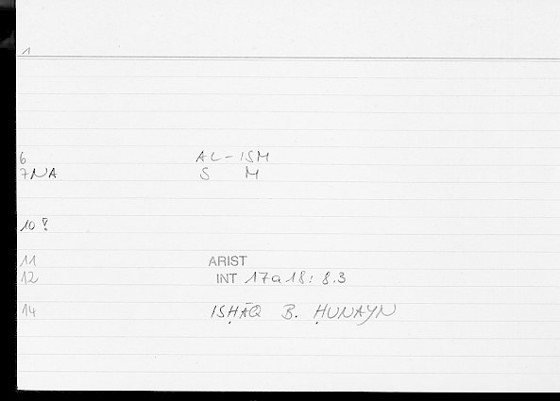 1
6 AL-ISM
7 NA S M
10
11 ARIST
12 INT 17a18: 8.3
14 ISḤĀQ B. ḤUNAYN